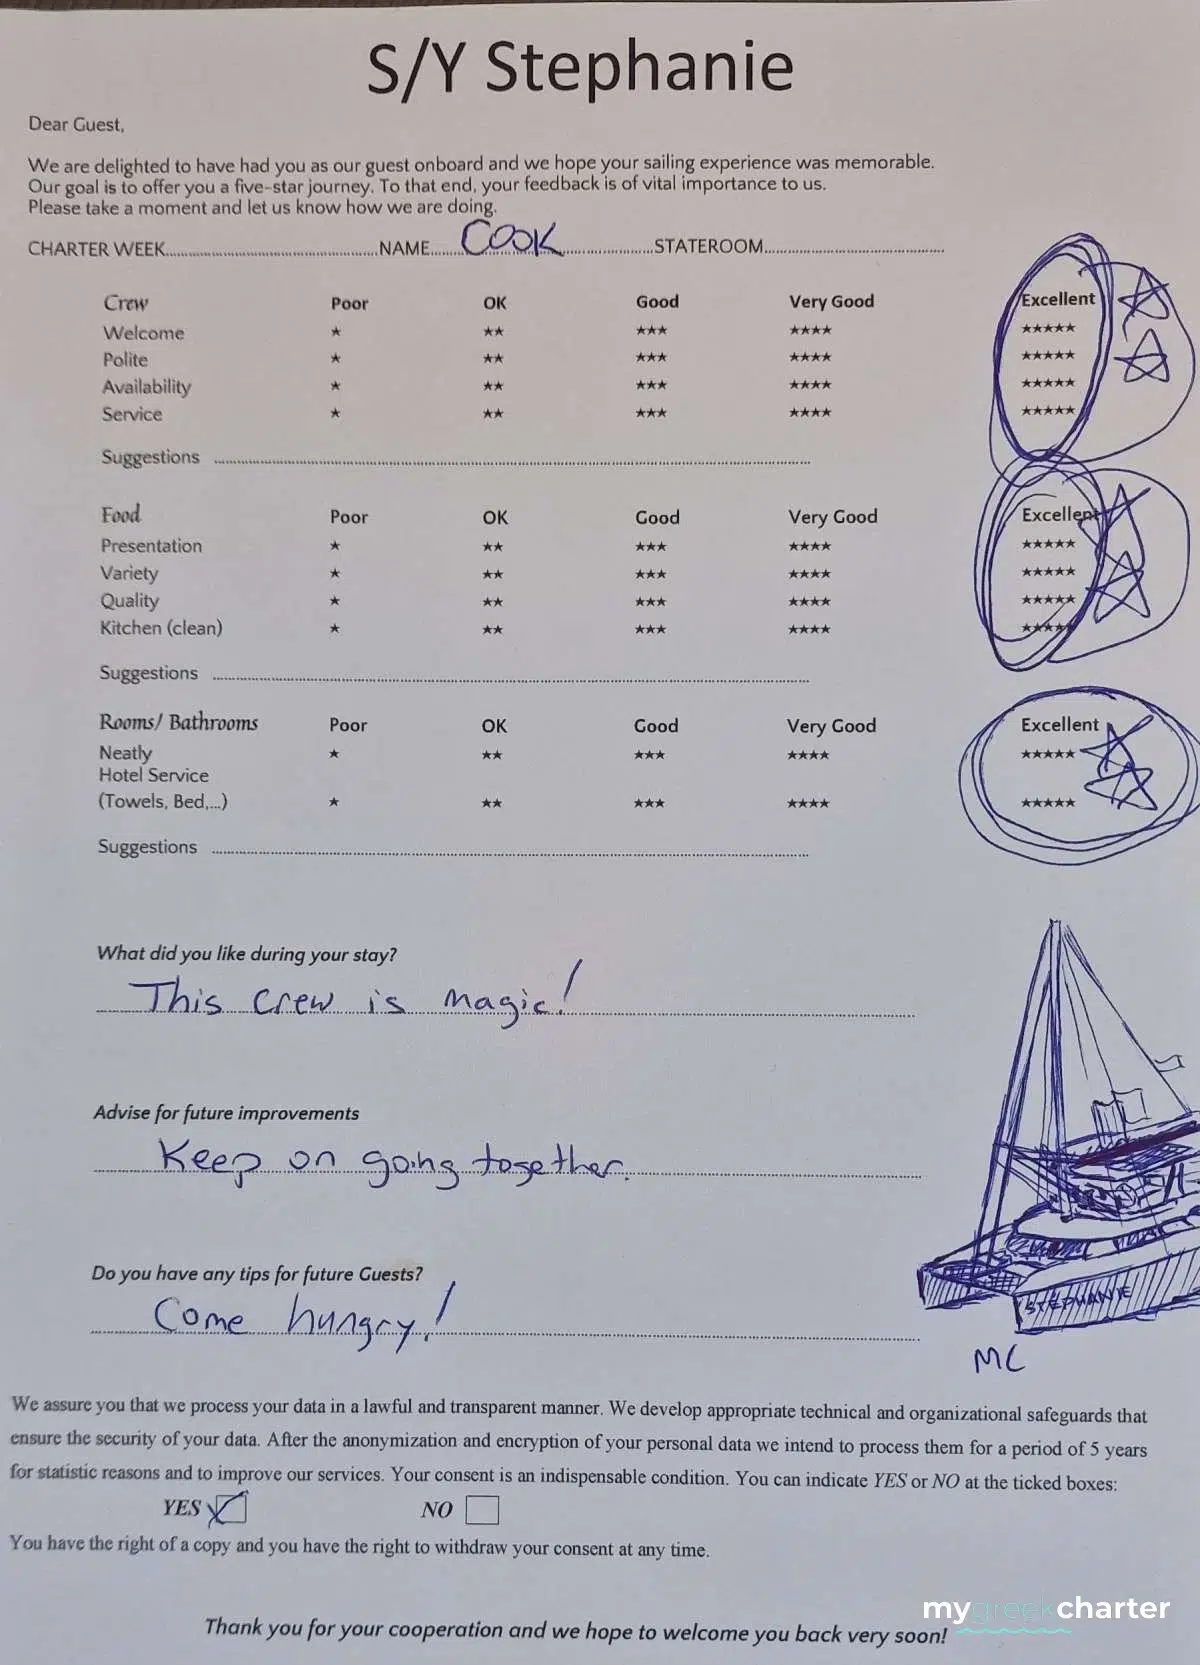 S/Y Stephanie
Dear Guest,
We are delighted to have had you as our guest onboard and we hope your sailing experience was memorable.
Our goal is to offer you a five-star journey. To that end, your feedback is of vital importance to us.
Please take a moment and let us know how we are doing.
CHARTER WEEK.......... NAME.......... COOK .......... STATEROOM..........
Crew Poor OK Good Very Good Excellent
Welcome ★ ★★ ★★★ ★★★★ ★★★★★
Polite ★ ★★ ★★★ ★★★★ ★★★★★
Availability ★ ★★ ★★★ ★★★★ ★★★★★
Service ★ ★★ ★★★ ★★★★ ★★★★★
Suggestions ..........
Food Poor OK Good Very Good Excellent
Presentation ★ ★★ ★★★ ★★★★ ★★★★★
Variety ★ ★★ ★★★ ★★★★ ★★★★★
Quality ★ ★★ ★★★ ★★★★ ★★★★★
Kitchen (clean) ★ ★★ ★★★ ★★★★ ★★★★★
Suggestions ..........
Rooms/ Bathrooms Poor OK Good Very Good Excellent
Neatly ★ ★★ ★★★ ★★★★ ★★★★★
Hotel Service
(Towels, Bed,...) ★ ★★ ★★★ ★★★★ ★★★★★
Suggestions ..........
What did you like during your stay?
This crew is magic!
Advise for future improvements
Keep on going together.
Do you have any tips for future Guests?
Come hungry!
STEPHANIE
MC
We assure you that we process your data in a lawful and transparent manner. We develop appropriate technical and organizational safeguards that
ensure the security of your data. After the anonymization and encryption of your personal data we intend to process them for a period of 5 years
for statistic reasons and to improve our services. Your consent is an indispensable condition. You can indicate YES or NO at the ticked boxes:
YES NO
You have the right of a copy and you have the right to withdraw your consent at any time.
mygreekcharter
Thank you for your cooperation and we hope to welcome you back very soon!